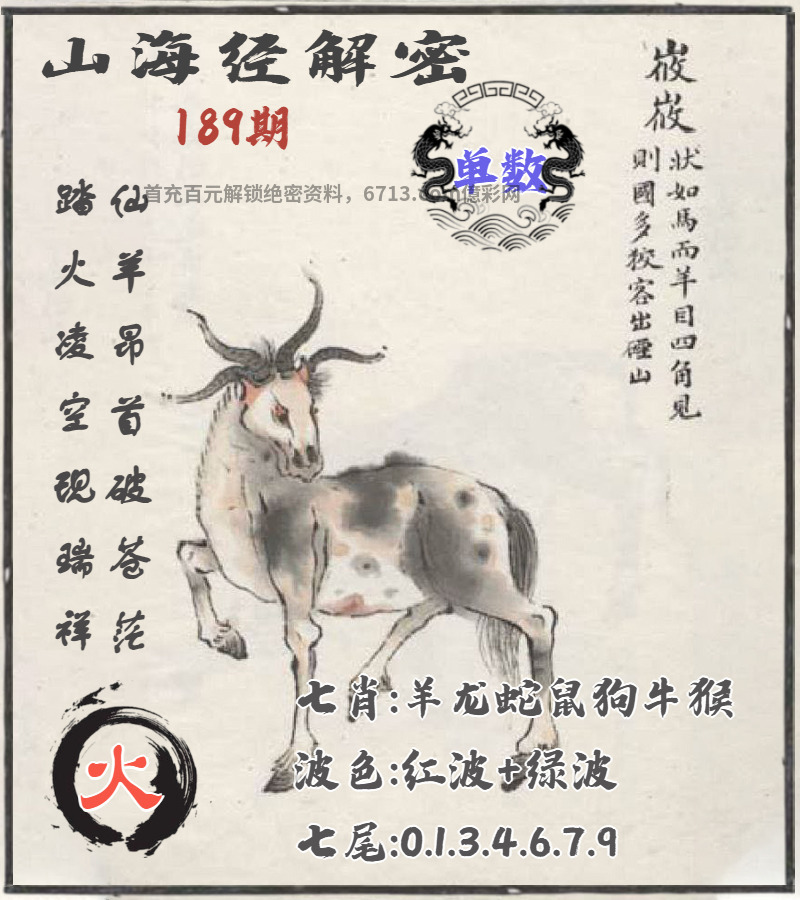 山海经解密
189期
单数
首充百元解锁绝密资料，6713.com億彩网
仙羊昂首破苍茫
踏火凌空现瑞祥
峳峳
狀如馬而羊目四角見
則國多狡客出硾山
火
七肖:羊龙蛇鼠狗牛猴
波色:红波+绿波
七尾:0.1.3.4.6.7.9